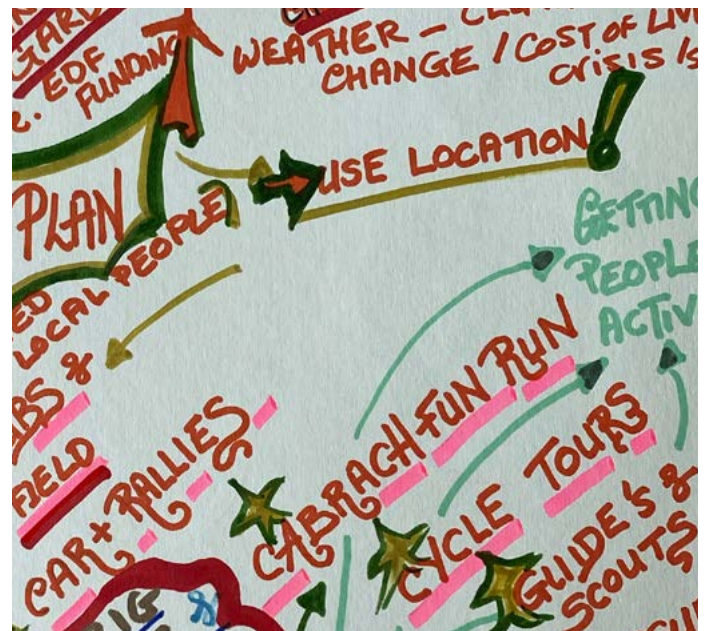 GARD
EDF
FUNDING
WEATHER -
CHANGE / COST OF LIV
CRISIS IS
PLAN
USE LOCATION!
LOCAL PEOPLE
GETTING
PEOPLE
ACTIV
BS &
FIELD
CAR + RALLIES
CABRACH FUN RUN
CYCLE TOURS
GUIDE'S &
SCOUTS
IG